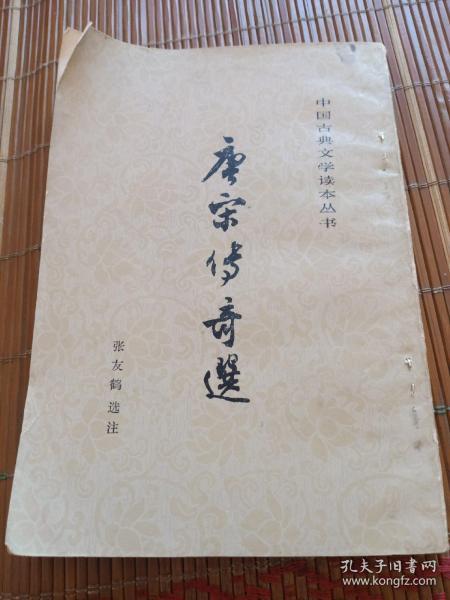 中国古典文学读本丛书
唐宋傳奇選
张友鹤 选注
孔夫子旧书网
www.kongfz.com